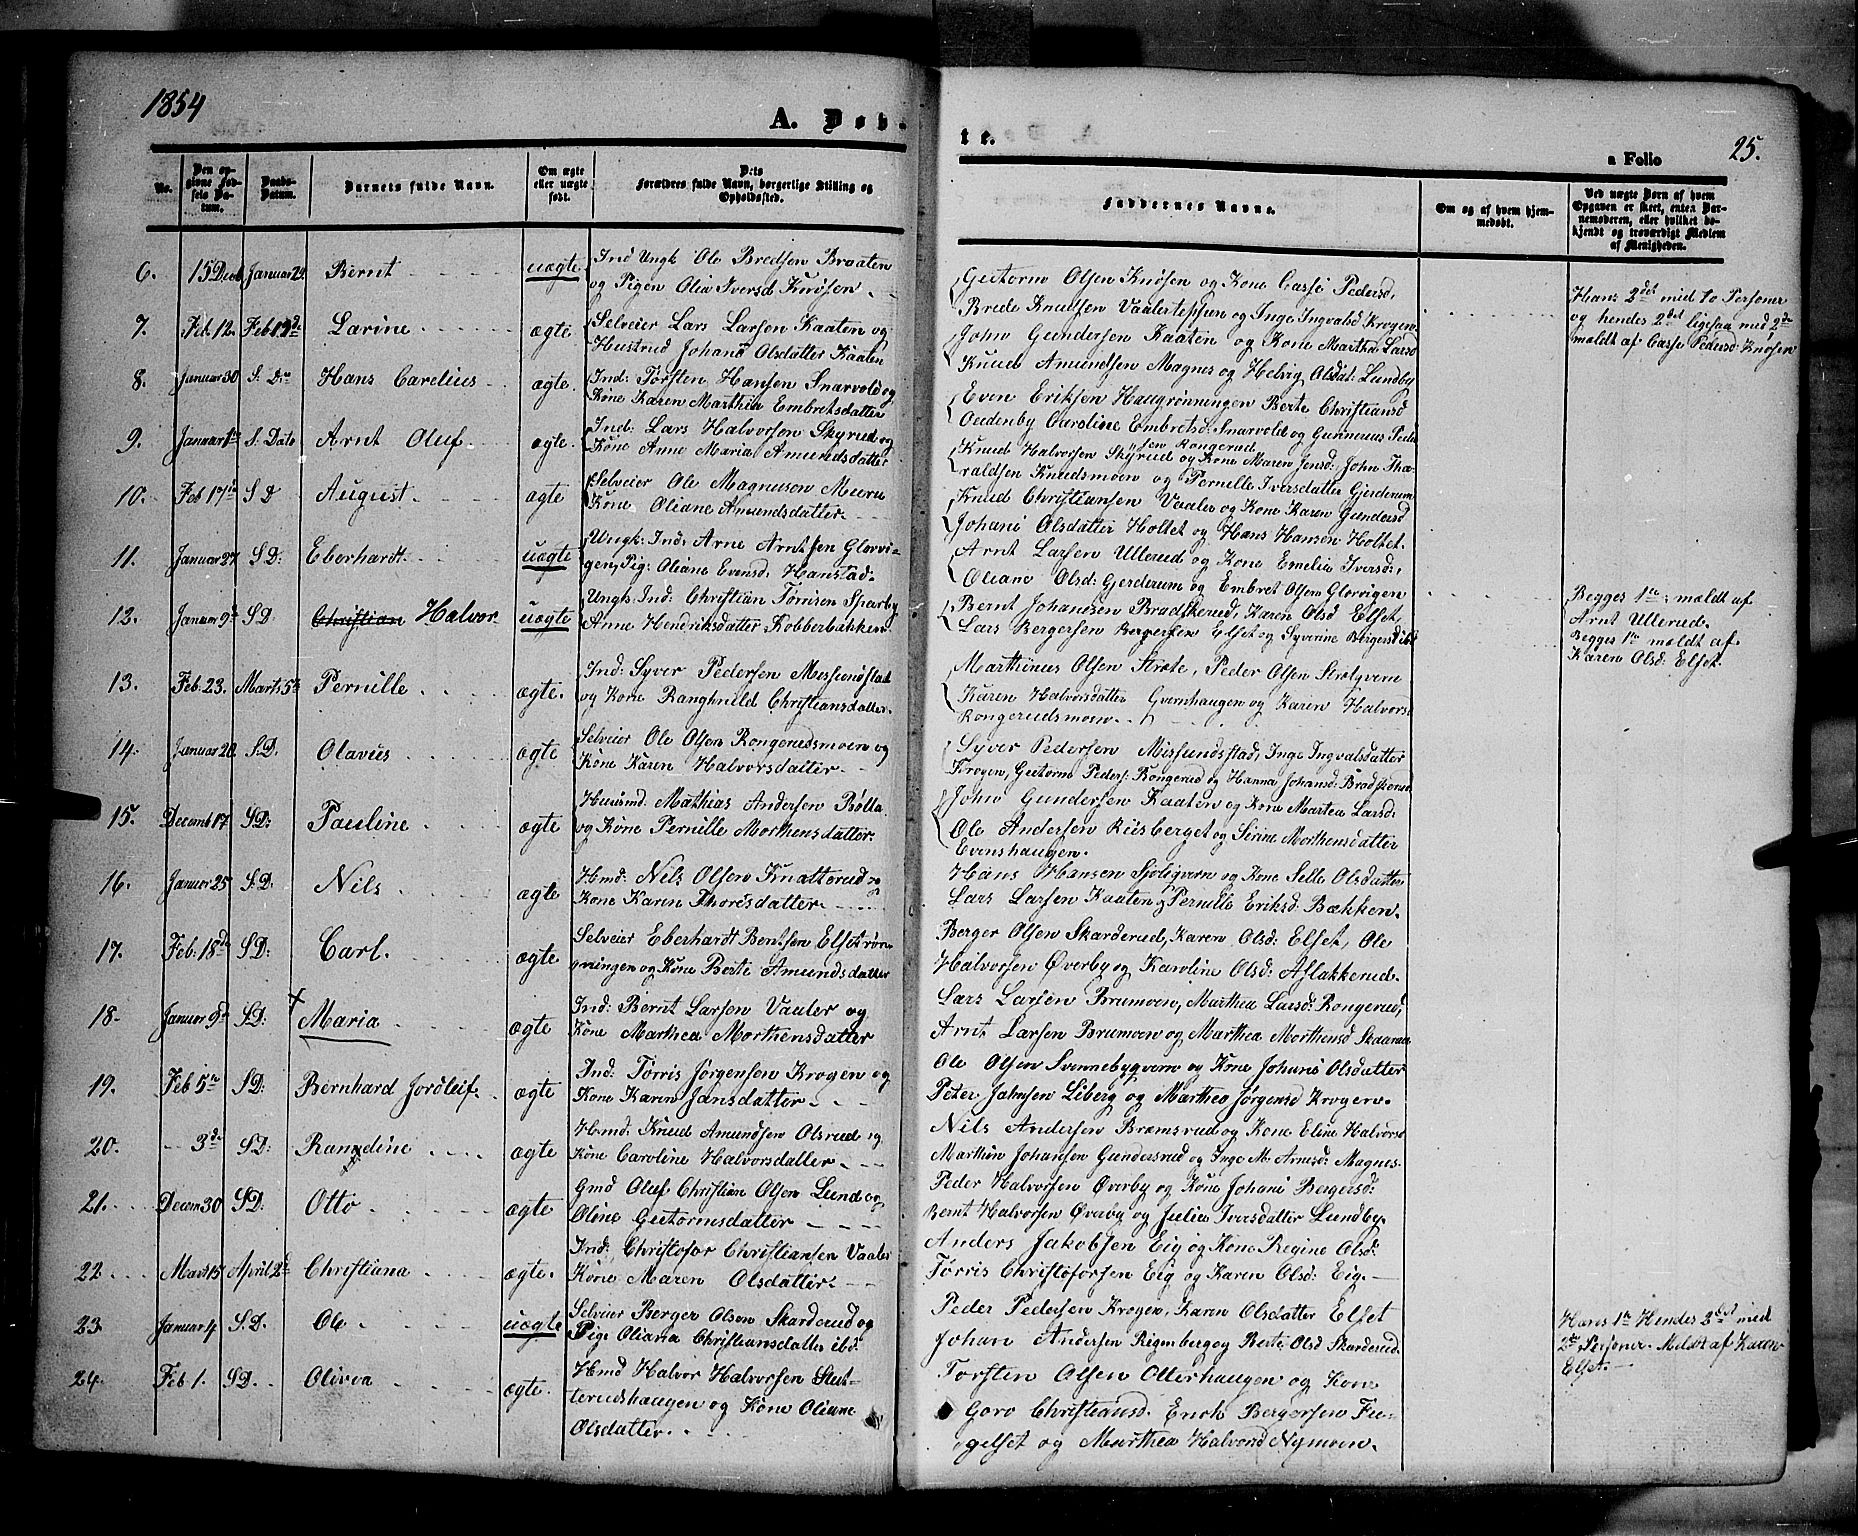 1854
A. Døb-
te.
a Folio 25.
No.
Den op-
givne Fød-
sels Da-
tum.
Daabs-
Datum.
Barnets fulde Navn.
Om ægte
eller uægte
født.
D:ts
Forældres fulde Navn, borgerlige Stilling og
Opholdssted.
Faddernes Navne.
Om og af hvem hjem-
medøbt.
Ved uægte Børn af hvem
Opgaven er skeet, enten Bar-
nemoderen, eller hvilket be-
kjendt og troværdigt Medlem
af Menigheden.
6. 15 Decb Januar 24 Bernt uægte
Ind Ungk Ole Bredsen Braaten
og Pigen Olia Iversd Knøsen
Guttorm Olsen Knøsen og Kone Casse Pedersd,
Brede Knudsen Vaalerteppen og Inge Ingvalsd Krogen
Hans 2det med to Personer
og hendes 2det ligesaa med 2de
meldt af Casse Pedersd: Knøsen
7. Feb 12 Feb 19de Larine ægte
Selveier Lars Larsen Kaaten og
Hustrue Johane Olsdatter Kaaten
John Gundersen Kaaten og Kone Marthe Larsd
Knud Amundsen Magnes og Helvig Olsdat: Lundby
8. Januar 30 S. D. Hans Carelius ægte
Ind: Torsten Hansen Snarvold og
Kone Karen Marthea Embretsdatter
Even Eriksen Haugrønningen Berte Christiansd
Oudenby Caroline Embretsd: Snarvold og Gunnerius Peder
9. Januar S. Dato Arnt Oluf ægte.
Ind: Lars Halvorsen Skyrud og
Kone Anne Maria Amundsdatter
sen Rongerud
Knud Halvorsen Skyrud og Kone Maren Jensd: John Tha-
raldsen Knudsmoen og Pernille Iversdatter Gjerderum
10. Feb 17de S D August ægte
Selveier Ole Magnuson Moern
Kone Oliane Amundsdatter
Knud Christiansen Vaaler og Kone Karen Gundersd
Johane Olsdatter Holtet og Hans Hansen Holtet.
11. Januar 27 S D: Eberhardt uægte
Ungk: Ind: Arne Arntsen Glorvi-
gen, Pig: Oliane Evensd. Hanstad.
Arnt Larsen Ullerud og Kone Emelia Iversd:,
Oliane Olsd: Gjerderum og Embret Olsen Glorvigen
Begges 1te: meldt af
Arnt Ullerud.
12. Januar 9de S D Christian Halvor uægte
Ungk: Ind: Christian Tørrisen Sparby
Anne Hendriksdatter Kobberbækken
Bernt Johannesen Bradskerud, Karen Olsd Elset,
Lars Bergersen Bergersen Elset og Syverine Bergersd ibd
Begges 1te meldt af
Karen Olsd: Elset.
13. Feb: 23. Marts 5te Pernille ægte.
Ind: Syver Pedersen Messenstad
og Kone Ranghnild Christiansdatter.
Marthinus Olsen Strete, Peder Olsen Strelgvern
Karen Halvorsdatter Gvernhaugen og Karen Halvorsd
Rongerudsmoen.
14. Januar 28 S D: Olavus ægte
Selveier Ole Olsen Rongerudsmoen og
Kone Karen Halvorsdatter.
Syver Pedersen Missundstad, Inge Ingvalsdatter
Krogen, Guttorm Peders: Rongerud og Hanna Johansd: Bradskerud
15. Decemb 17 S D: Pauline ægte
Huusmd. Mathias Andersen Bølla
og Kone Pernille Morthensdatter.
John Gundersen Kaaten og Kone Martea Larsd:
Ole Andersen Riisberget og Sirine Morthensdatter
Evenshaugen.
16. Januar 25 S: D. Nils ægte
Hmd: Nils Olsen Knatterud og
Kone Karen Thorisdatter.
Hans Hansen Sjoligvern og Kone Selle Olsdatter
Lars Larsen Kaaten og Pernille Eriksd: Bækken.
17. Feb: 18de S D: Carl. ægte
Selveier Eberhardt Berntsen Elsetrøn-
gningen og Kone Berte Amundsdatter
Berger Olsen Skarderud, Karen Olsd: Elset, Ole
Halvorsen Øverby og Karoline Olsd: Aflakkerud.
18. Januar 9de S D: Maria ægte
Ind: Bernt Larsen Vaaler og
Kone Marthea Morthensdatter
Lars Larsen Brumoen, Marthea Larsd: Rongerud,
Arnt Larsen Brumoen og Marthea Morthensd Skaaraa
19. Feb 5te S D: Bernhard Jordleif. ægte
Ind: Tørris Jørgensen Krogen og
Kone Karen Jansdatter.
Ole Olsen Svennebygvern og Kone Johane Olsdatter
Peter Jahnsen Liberg og Marthea Jørgensd Krogen.
20. - 3de S D: Randine ægte
Hmd: Knud Amundsen Olsrud og
Kone Caroline Halvorsdatter
Nils Andersen Bramsrud og Kone Eline Halvorsd
Marthin Johansen Gundersrud og Inge M. Arnesd: Magnes.
21. Decem 30 S D: Otto ægte
Gmd Oluf Christian Olsen Lund og
Oline Guttormsdatter
Peder Halvorsen Øverby og Kone Johane Bergersd:
Bernt Halvorsen Øverby og Julia Iversdatter Lundby.
22. Mart 15 April 2de Christiana ægte.
Ind: Christofor Christiansen Vaaler
Kone Maren Olsdatter.
Anders Jakobsen Eig og Kone Regine Olsd:
Tørris Christoforsen Eig og Karen Olsd: Eig.
23. Januar 4 S. D. Ole uægte
Selveier Berger Olsen Skarderud og
Pig: Oliana Christiansdatter ibd.
Peder Pedersen Krogen, Karen Olsdatter Elset
Johan Andersen Rigenberg og Berte Olsd Skarderud.
Hans 1te Hendes 2det med
2de Personer. Meldt af Karen
Elset.
24. Feb 1. S D. Olivia ægte.
Hmd Halvor Halvorsen Slut-
terudshaugen og Kone Oliane
Olsdatter.
Torsten Olsen Otterhaugen og Kone
Goro Christiansd. Erich Bergersen Fu-
gelset og Marthea Halvorsd Nymoen.